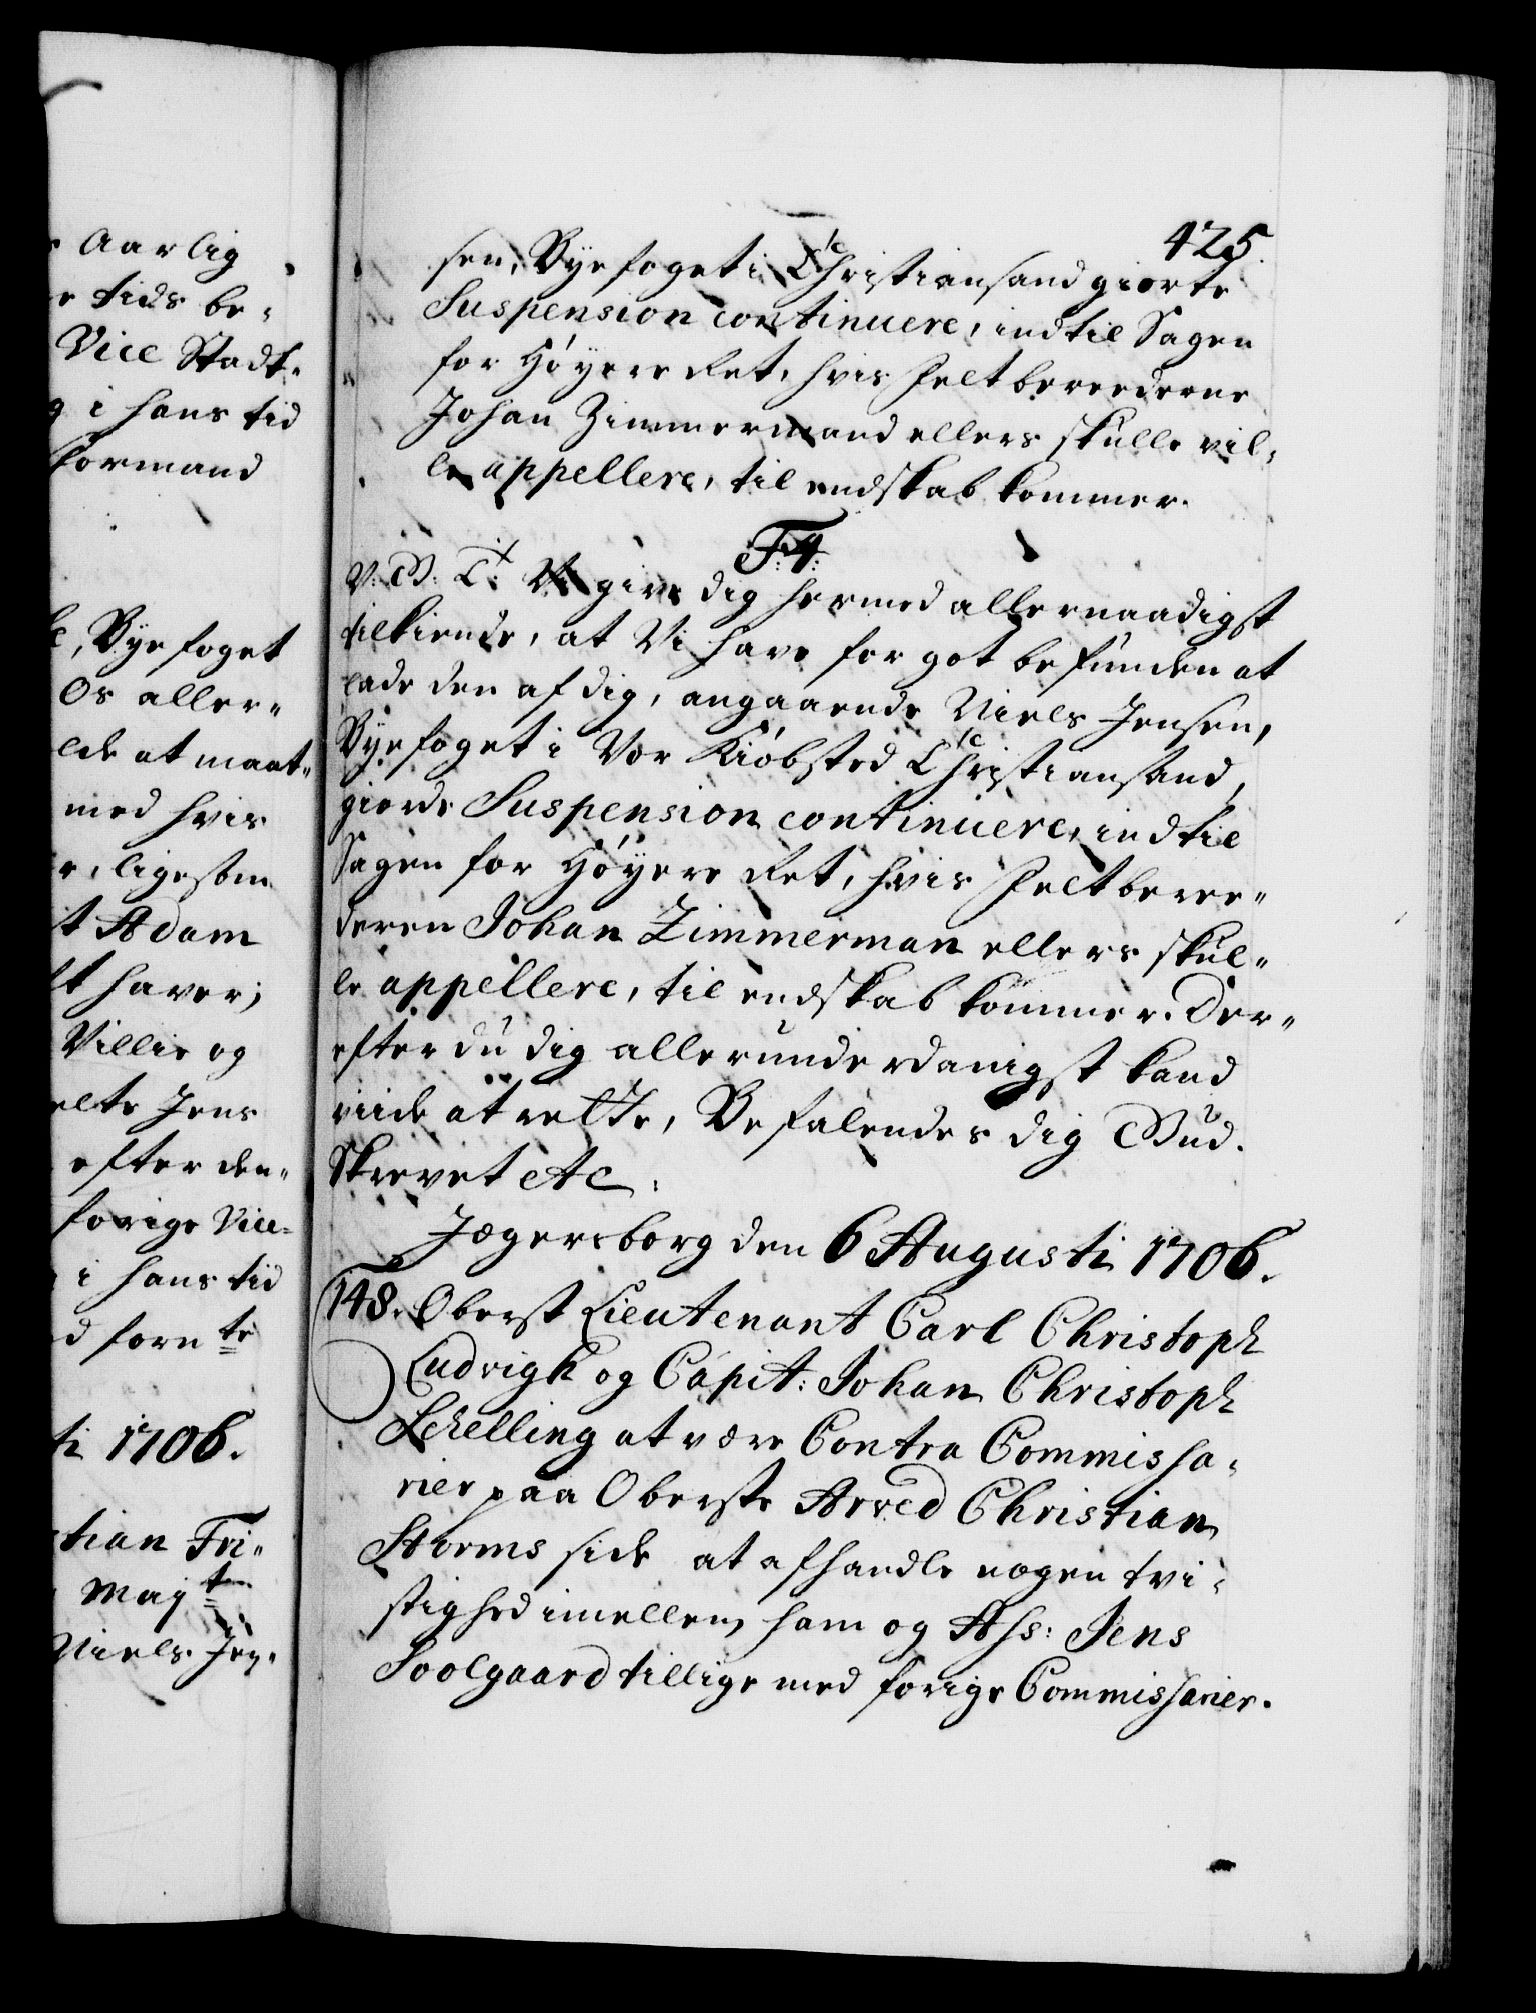 s Aarlig
e tids be-
Vice Stadt-
g i hans tid
formand
, Byefoget
Os aller-
lde at maat-
med hvis
r, ligesom
t Adam
t haver;
Villie og
elte Jens
efter den-
forige Vice-
i hans tid
d forn te
ti 1706.
stian Fri-
Maj t
Niels Jen-
425.
sen, Byefoget i Christiansand giorte
Suspension continuere, indtil Sagen
for Høyere Ret, hvis Feltbereederne
Johan Zimmermand ellers skulle vil-
le appellere, til endskab kommer.
F. 4.
V: G: T: Vi give dig hermed allernaadigst
tilkiende, at Vi have for got befunden at
lade den af dig, angaaende Niels Jensen,
Byefoget i Vor Kiøbsted Christiansand,
giorde Suspension continuere, indtil
Sagen for Høyere Ret, hvis Feltberee-
deren Johan Zimmerman ellers skul-
le appellere, til endskab kommer. Der-
efter du dig allerunderdanigst kand
viide at rette, Befalendes dig Gud.
Skrevet etc.
Jægersborg den 6 Augusti 1706.
148. Oberst Lieutenant Carl Christoph
Ludvigh og Capit: Johan Christoph
Schelling at være Contra Commissa-
rier paa Oberste Arved Christian
Storms side at afhandle nogen tvi-
stighed imellem ham og Ass: Jens
Soolgaard tillige med forige Commissarier.